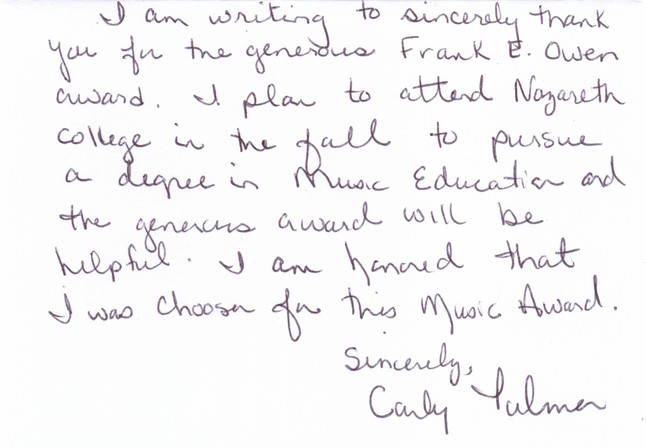 I am writing to sincerely thank
you for the generous Frank E. Owen
award. I plan to attend Nazareth
college in the fall to pursue
a degree in Music Education and
the generous award will be
helpful. I am honored that
I was choosen for this Music Award.
Sincerely,
Carly Palmer